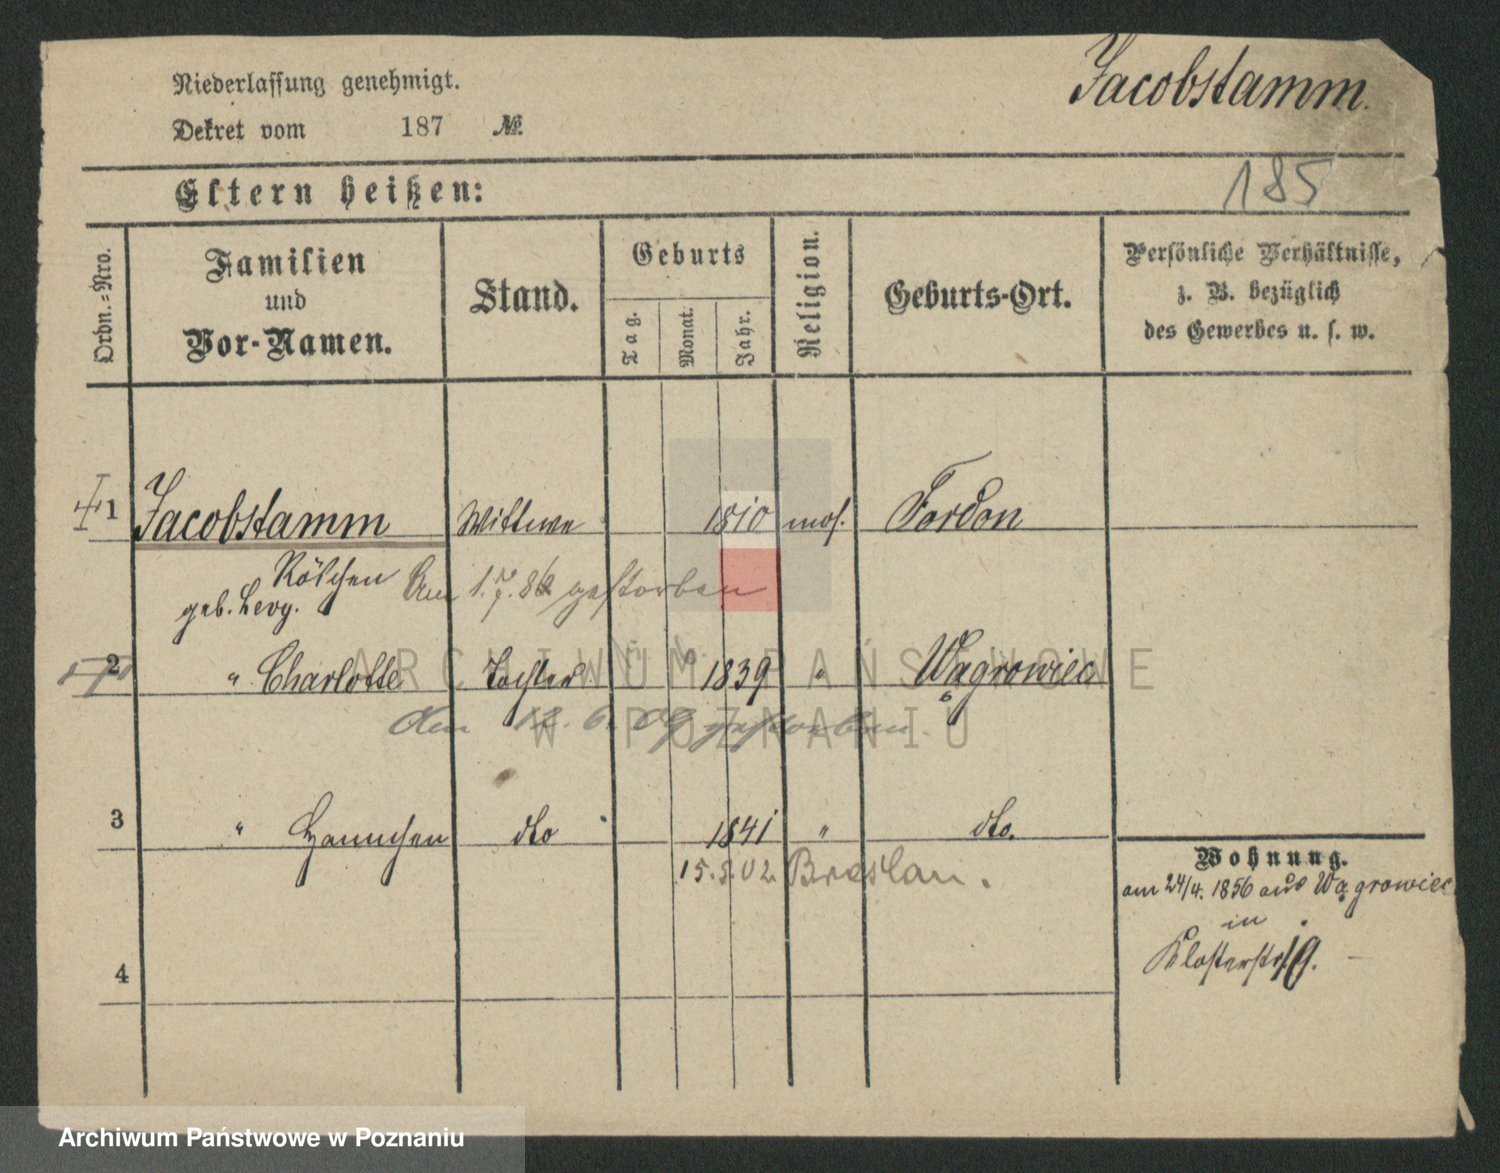 Jacobstamm.
Niederlassung genehmigt.
Dekret vom 187 №.
185
Eltern heißen:
Ordn.=Nro.
Familien
und
Vor-Namen.
Stand.
Geburts
Tag.
Monat.
Jahr.
Religion.
Geburts-Ort.
Persönliche Verhältnisse,
z. B. bezüglich
des Gewerbes u. s. w.
1 Jacobstamm Wittwe 1810 mos. Fordon
Röschen
geb. Levy.
Am 1.7.86 gestorben
2 " Charlotte Tochter 1839 " Wągrowiec
Am 12. 6. 09 gestorben.
3 " Hannchen dto 1841 " dto.
15.5.02. Breslau.
4
Wohnung.
am 24/4. 1856 aus Wągrowiec
in
Klosterstr. 19.
ARCHIWUM PAŃSTWOWE
W POZNANIU
Archiwum Państwowe w Poznaniu